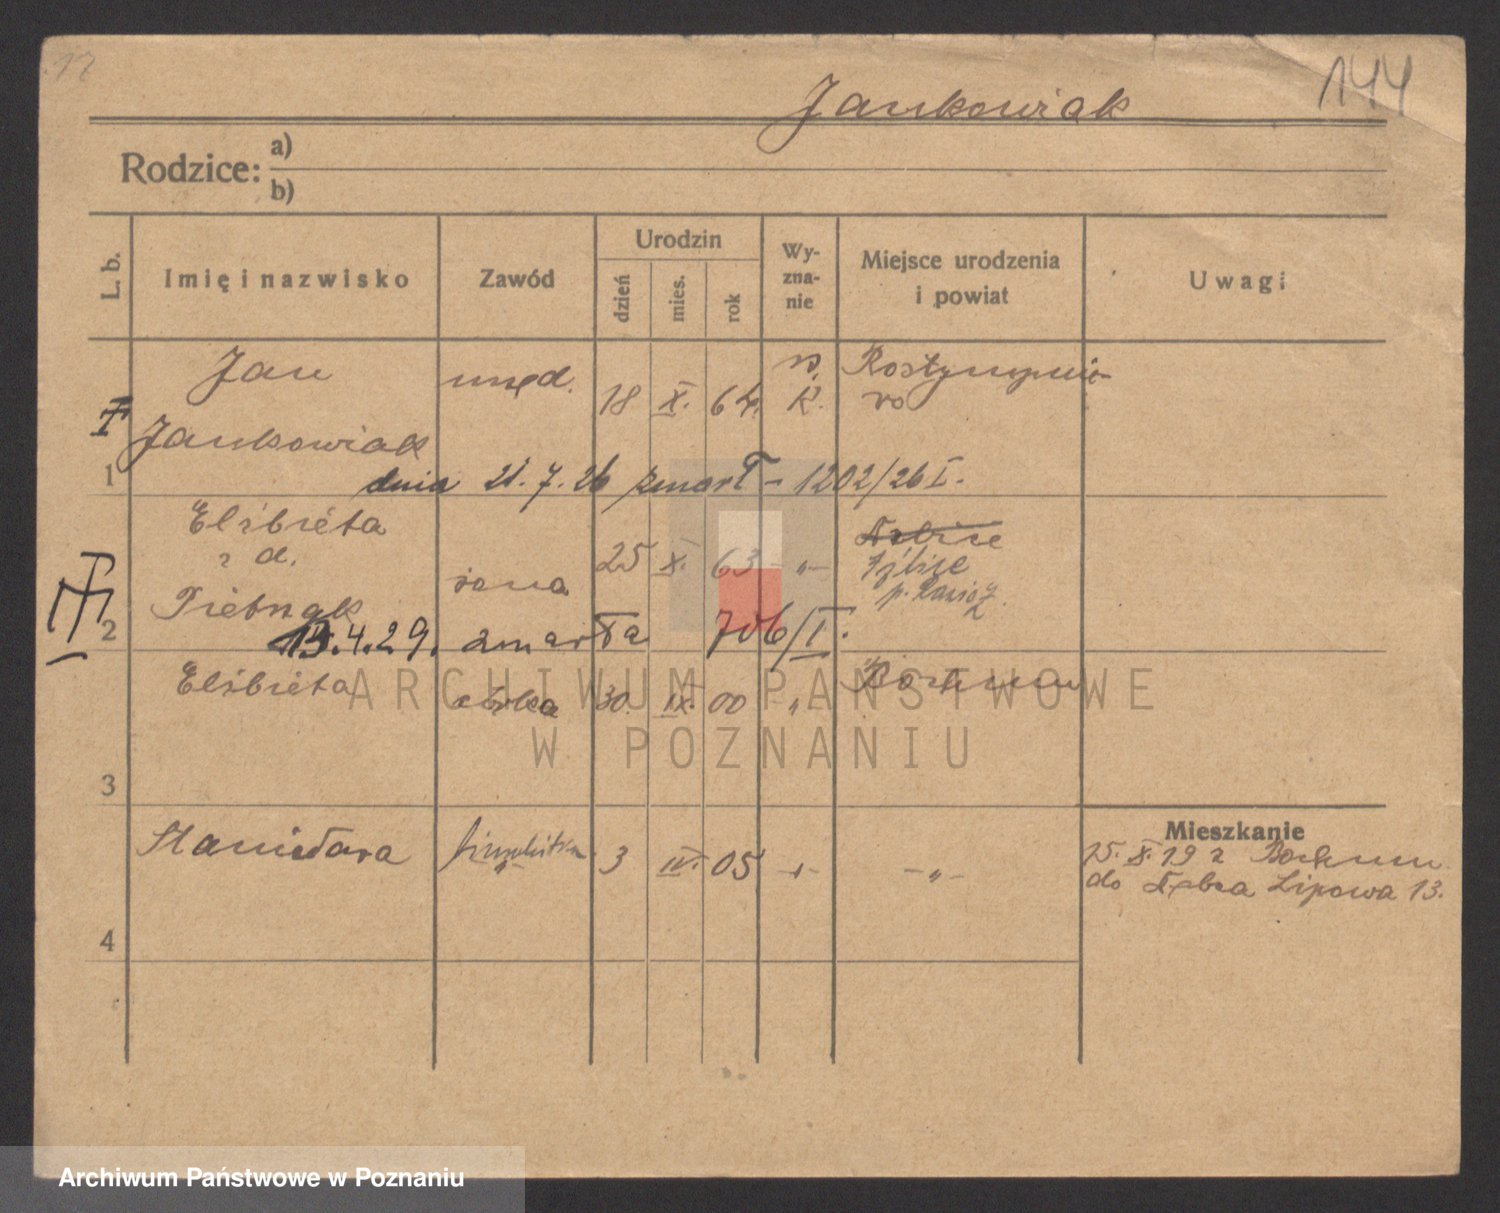 17
144
Jankowiak
Rodzice: a)
b)
L. b.
Imię i nazwisko
Zawód
Urodzin
dzień
mies.
rok
Wy-
zna-
nie
Miejsce urodzenia
i powiat
Uwagi
Jan
Jankowiak
1
urzęd.
18 X. 64.
r. K.
dnia 21.7.26 zmarł - 1202/26 I.
Elżbieta
z d.
żona
25 X. 63 -„-
2
4.29. zmarła 706/I.
Elżbieta
córka
30. IX. 00 „
Bochum
3
Stanisława
„
3 IV. 05 -„-
-„-
4
Mieszkanie
15. X. 19 z Bochum
do Dębca Lipowa 13.
ARCHIWUM PAŃSTWOWE
W POZNANIU
Archiwum Państwowe w Poznaniu